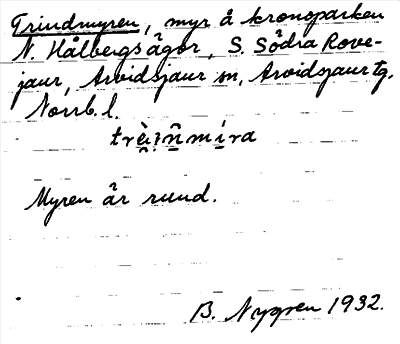 Trindmyren, myr å kronoparken
N. Hålbergsågor, S. Södra Rove-
jaur, Arvidsjaur sn, Arvidsjaur tg.
Norrb. l.
Myren är rund.
B. Nygren 1932.